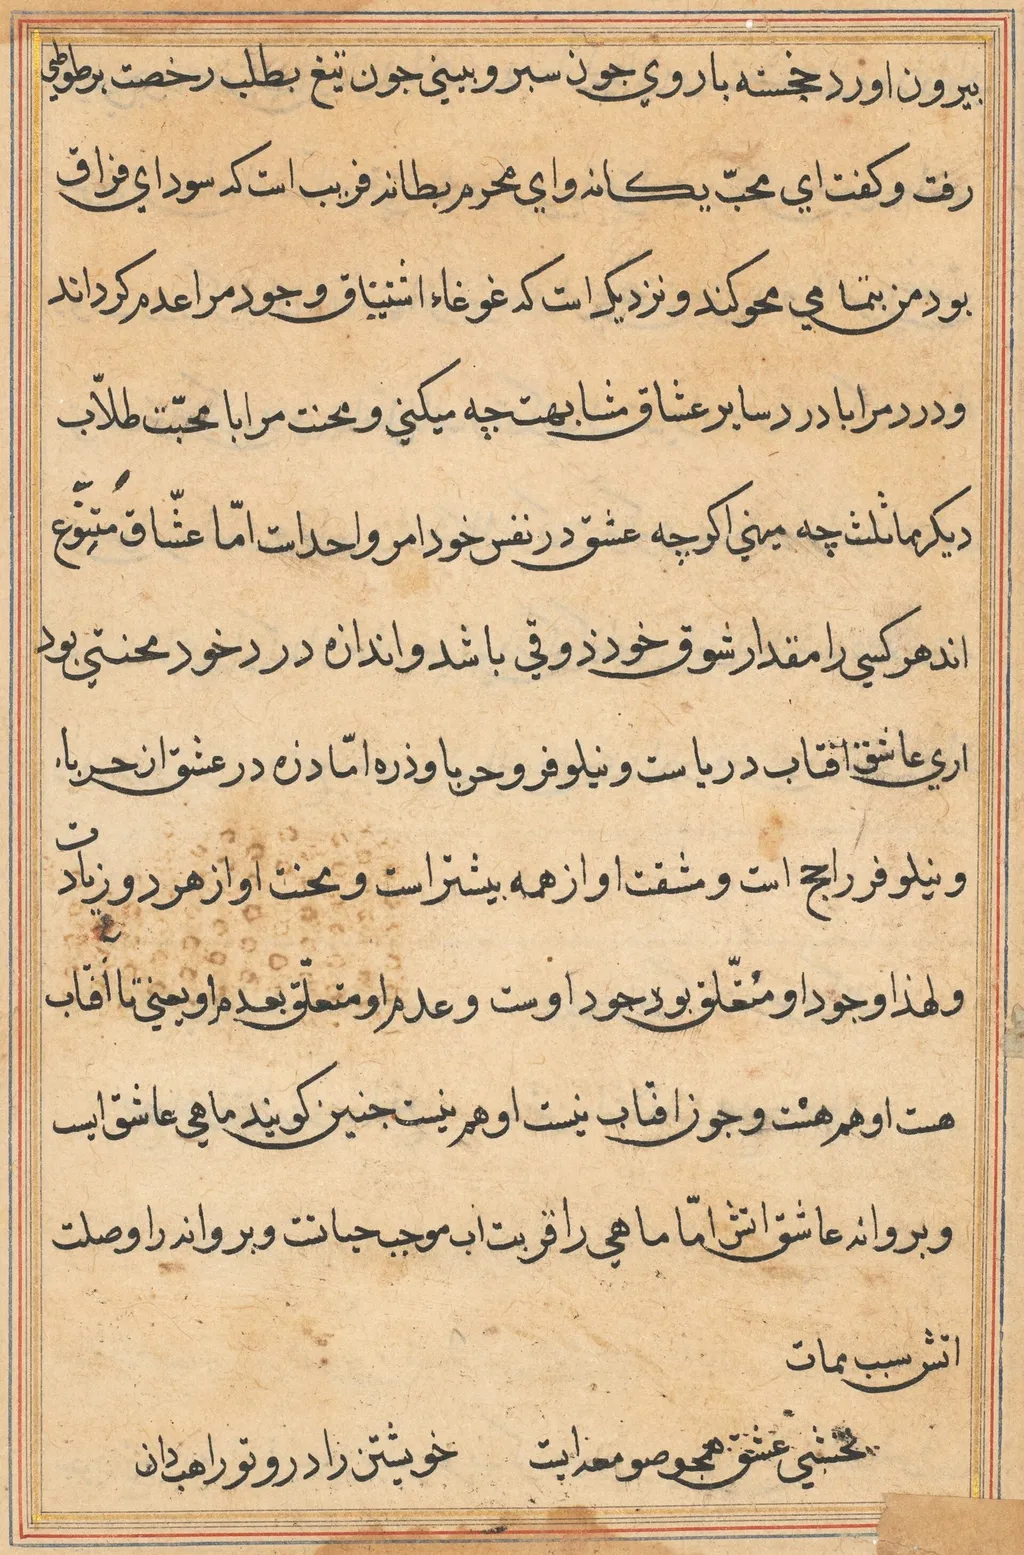 بیرون اورد خجسته با روي جون سبر و بیني جون تیغ بطلب رخصت بر طوطي
رفت و کفت اي محبّ یکانه و اي محرم بطانه قریب است که سوداي فراق
بود من بتمامي محو کند و نزدیک است که غوغاء اشتیاق وجود مرا عدم کرداند
و درد مرا با درد سایر عشاق مشابهت چه میکني و محنت مرا با محبّت طلاّب
دیکر مماثلث چه میهني اکر چه عشق در نفس خود امر واحد است امّا عشّاق مُتنّوع
اند هر کسي را مقدار شوق خود ذوقي باشد و اندازه درد خود محنتي بود
اري عاشق افتاب دریا ست و نیلوفر و حربا و ذره امّا ذره در عشق از حرباء
و نیلوفر راجح است و مشقت او از همه بیشتر است و محنت او از هر دو زیادت
و لهذا وجود او متعّلق بوجود اوست و عدم او متعلّق بعدم او یعني تا افتاب
هست او هم هست و جون افتاب نیست او هم نیست جنین کویند ماهي عاشق ابست
و بروانه عاشق اتش امّا ماهي را قربت اب موجب حیاتست و بروانه را وصلت
اتش سبب ممات
نخشبي عشق همجو صومعه ایست خویشتن را درو تو راهب دان